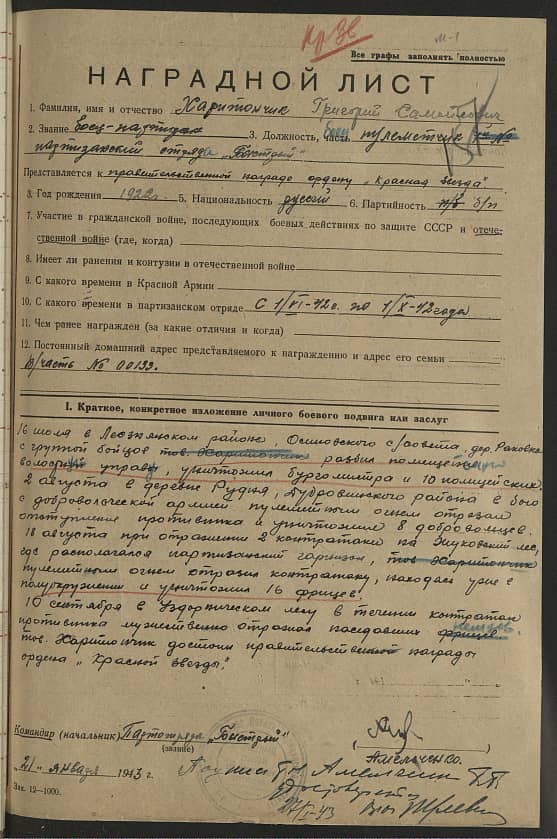 Кр Зв
м-1
Все графы заполнять полностью
НАГРАДНОЙ ЛИСТ
1. Фамилия, имя и отчество Харитончик Григорий
2. Звание Боец-партизан 3. Должность, часть пулеметчик
партизанский отряд "Быстрый"
Представляется к правительственной награде ордену "Красная звезда"
3. Год рождения 1922г. 5. Национальность русский 6. Партийность б/п
7. Участие в гражданской войне, последующих боевых действиях по защите СССР и отече-
ственной войне (где, когда)
8. Имеет ли ранения и контузии в отечественной войне
9. С какого времени в Красной Армии
10. С какого времени в партизанском отряде С 1/VI-42г. по 1/X-42 года
11. Чем ранее награжден (за какие отличия и когда)
12. Постоянный домашний адрес представляемого к награждению и адрес его семьи
В/часть № 00133.
I. Краткое, конкретное изложение личного боевого подвига или заслуг
16 июля в Лиознянском районе, Осиновского с/совета, дер. Раковка
с группой бойцов тов. Харитончик разбил полицейскую
управу, уничтожил бургомистра и 10 полицейских.
2 августа в деревне Рудня, Дубровенского района в бою
с добровольческой армией пулеметным огнем отрезал
отступление противника и уничтожил 8 добровольцев.
18 августа при отражении 2 контратаки на лес,
где располагался партизанский гарнизон, тов Харитончик
пулеметным огнем отразил контратаку, находясь уже в
полуокружении и уничтожил 16 фрицев.
10 сентября в лесу в течении контратак
противника мужественно отражал наседавших фрицев немцев.
тов. Харитончик достоин правительственной награды
ордена "Красной звезды."
Командир (начальник) Партотряда "Быстрый"
(звание)
Амельченко.
"21" января 1943 г.
Зак. 12—1000.
27/I-43